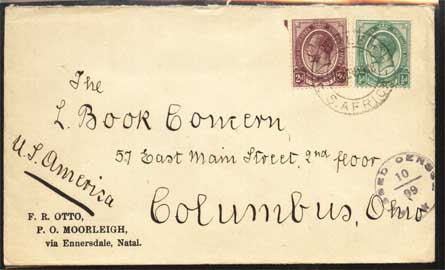 The
L. Book Concern
57 East Main Street, 2nd floor
Columbus, Ohio
U.S. America
F. R. OTTO,
P. O. MOORLEIGH,
via Ennersdale, Natal.
S. AFRICA
10
99